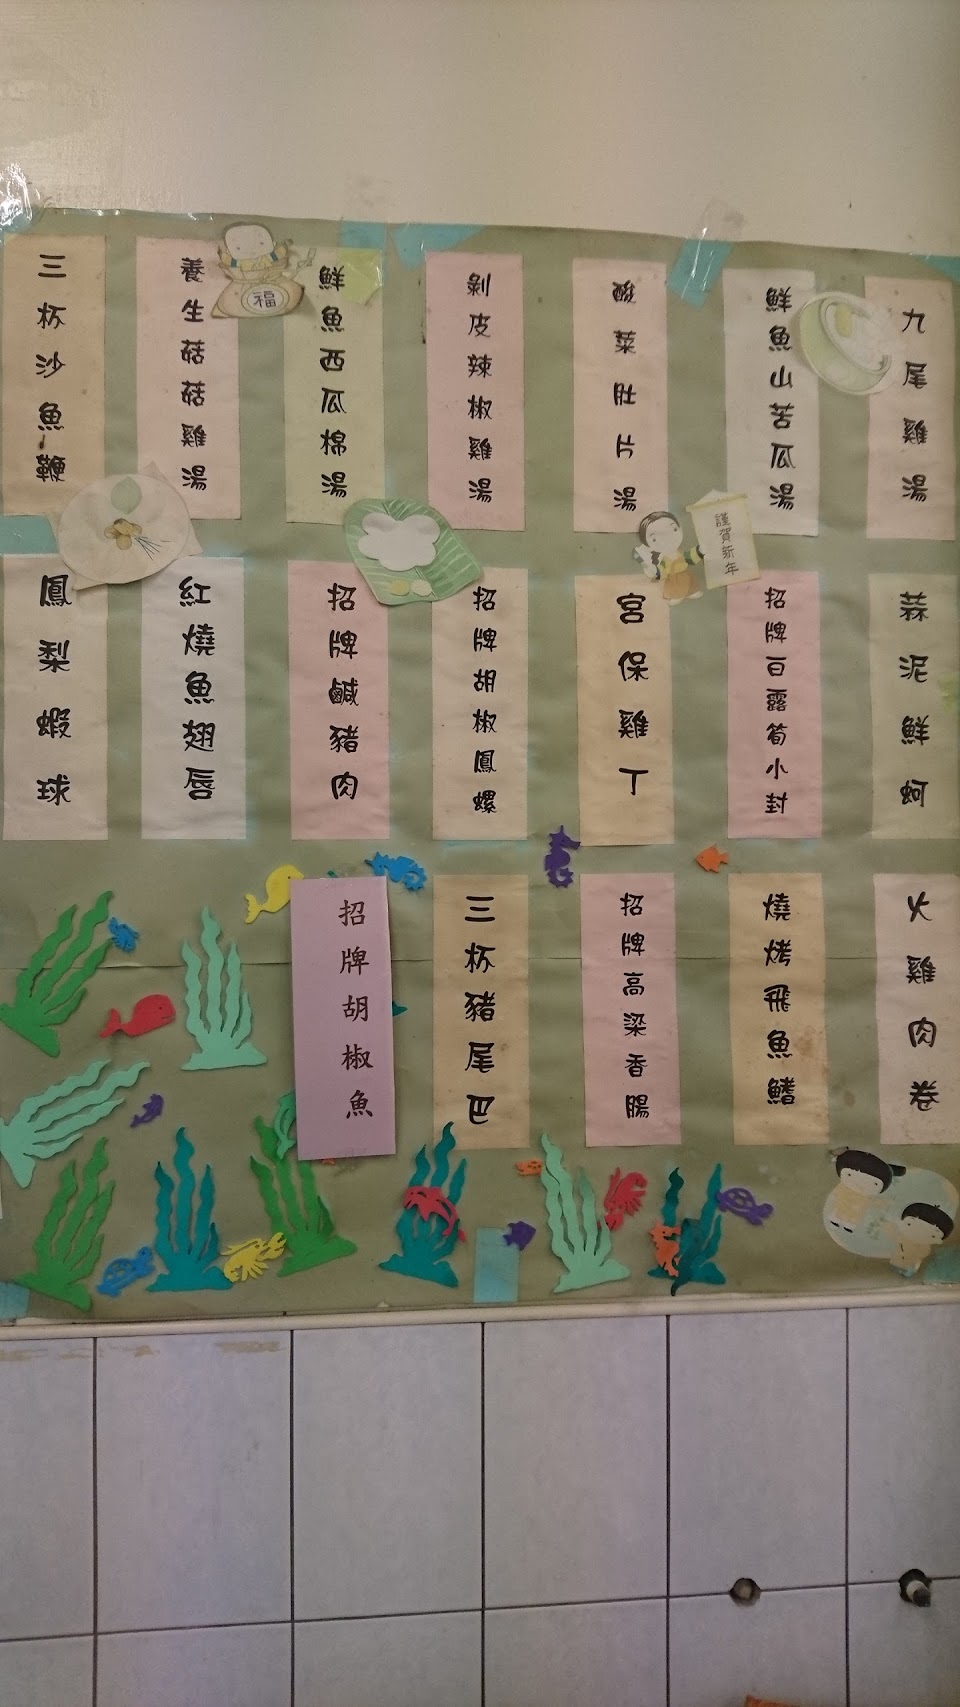 九尾雞湯
鮮魚山苦瓜湯
酸菜肚片湯
剝皮辣椒雞湯
鮮魚西瓜棉湯
養生菇菇雞湯
三杯沙魚鞭
福
謹賀新年
蒜泥鮮蚵
招牌白露筍小封
宮保雞丁
招牌胡椒鳳螺
招牌鹹豬肉
紅燒魚翅唇
鳳梨蝦球
火雞肉卷
燒烤飛魚鱔
招牌高粱香腸
三杯豬尾巴
招牌胡椒魚